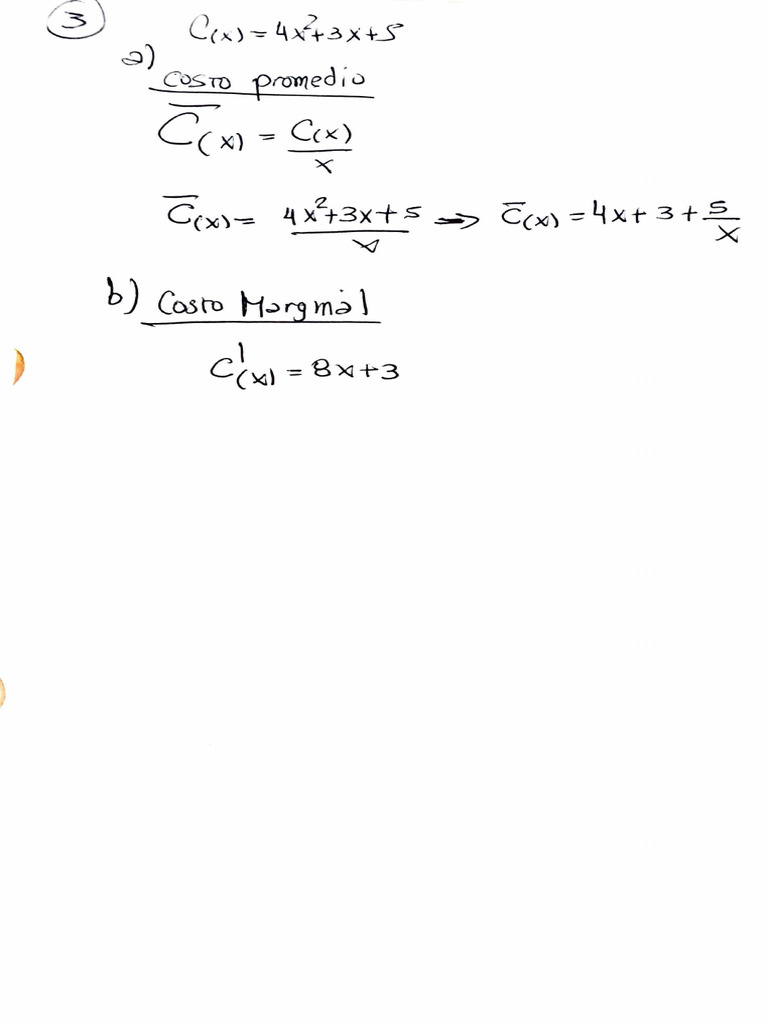 3
C(x) = 4x²+3x+5
a)
Costo promedio
C̅(x) = C(x)/x
C̅(x) = (4x²+3x+5)/x ⇒ C̅(x) = 4x + 3 + 5/x
b) Costo Marginal
C'(x) = 8x+3